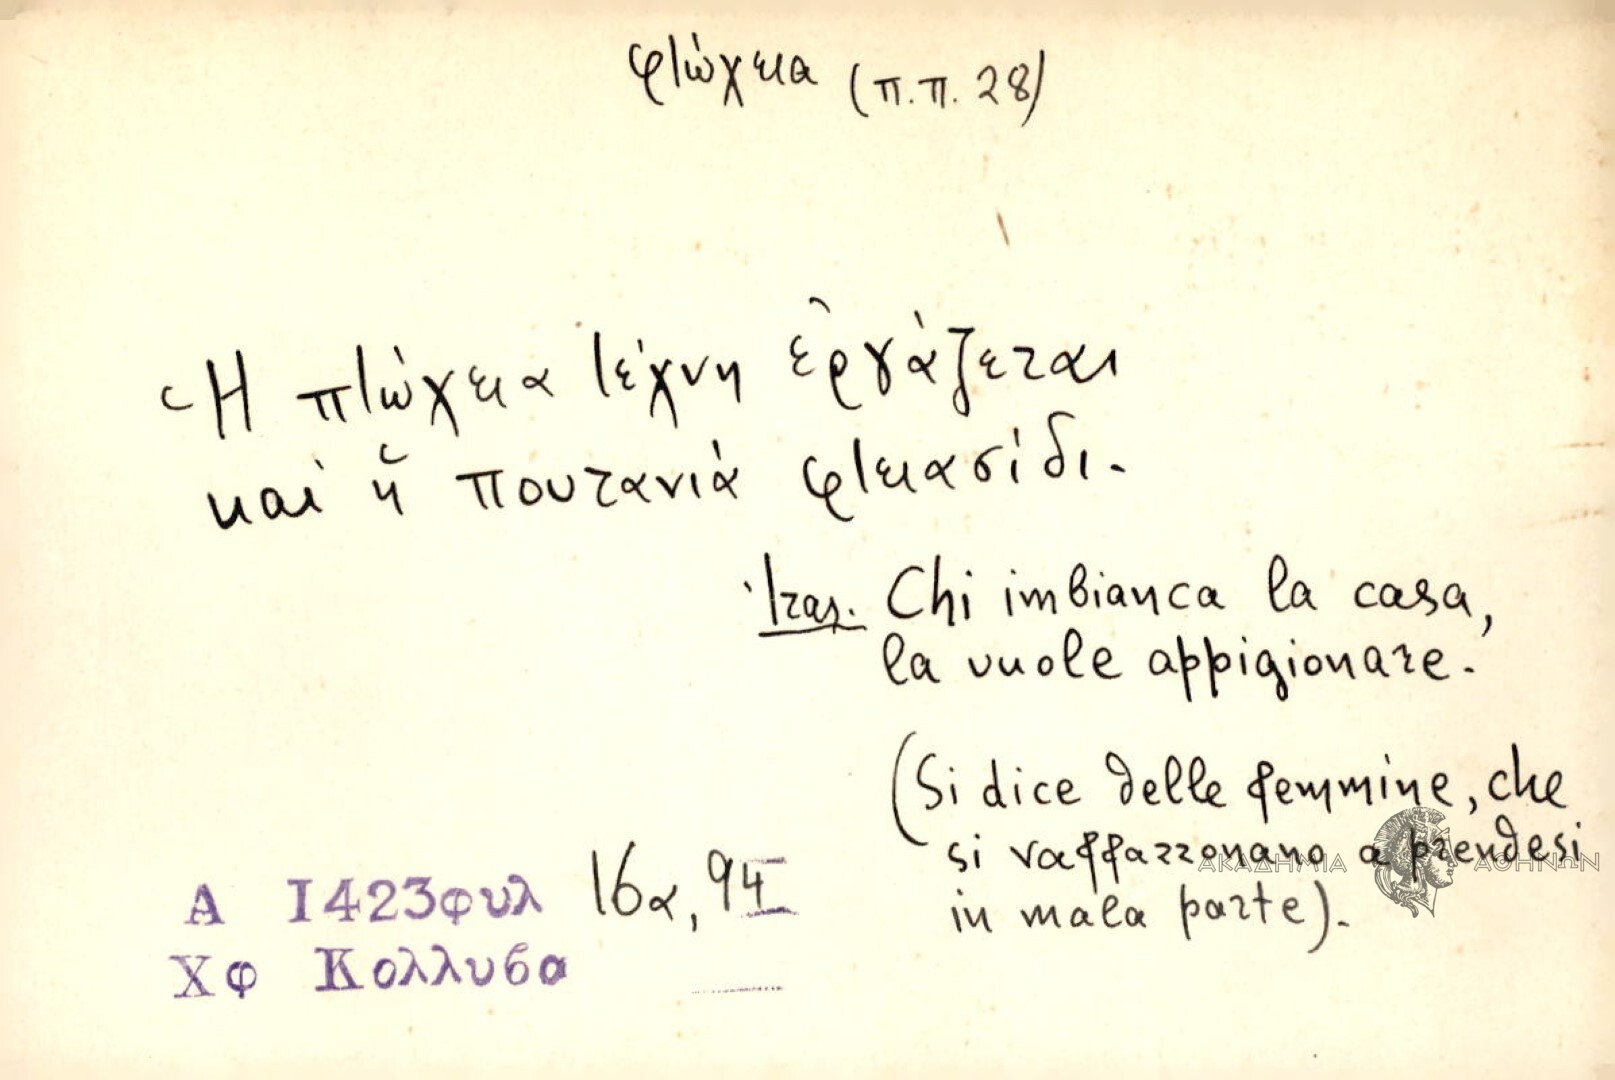 φτώχεια (π.π. 28)
Ἡ πτώχεια τέχνη ἐργάζεται
καὶ ἡ πουτανιὰ φτειασίδι.
Ἰταλ. Chi imbianca la casa,
la vuole appigionare.
(Si dice delle femmine, che
si raffazzonano a prendesi
in mala parte).
Α 1423φυλ 16α, 94
Χφ Κολλυβα
ΑΚΑΔΗΜΙΑ ΑΘΗΝΩΝ